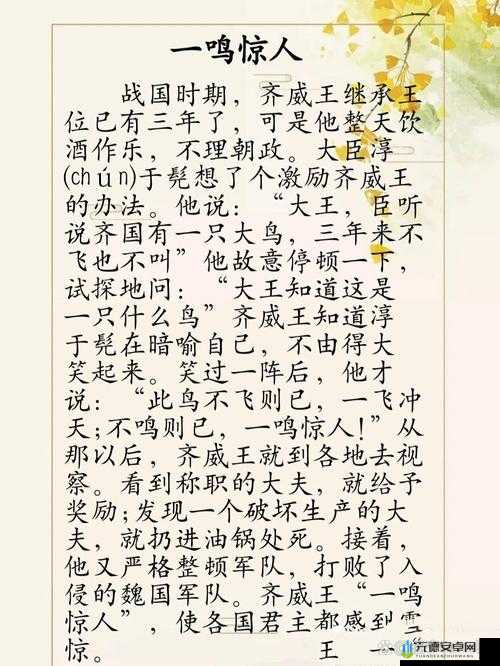 一鸣惊人
战国时期，齐威王继承王
位已有三年了，可是他整天饮
酒作乐，不理朝政。大臣淳
(chún)于髡想了个激励齐威王
的办法。他说：“大王，臣听
说齐国有一只大鸟，三年来不
飞也不叫”他故意停顿一下，
试探地问：“大王知道这是
一只什么鸟”齐威王知道淳
于髡在暗喻自己，不由得大
笑起来。笑过一阵后，他才
说：“此鸟不飞则已，一飞冲
天；不鸣则已，一鸣惊人！”从
那以后，齐威王就到各地去视
察。看到称职的大夫，就给予
奖励；发现一个破坏生产的大
夫，就扔进油锅处死。接着，
他又严格整顿军队，打败了入
侵的魏国军队。齐威王“一鸣
惊人”，使各国君主都感到
惊。 王
九德安卓网